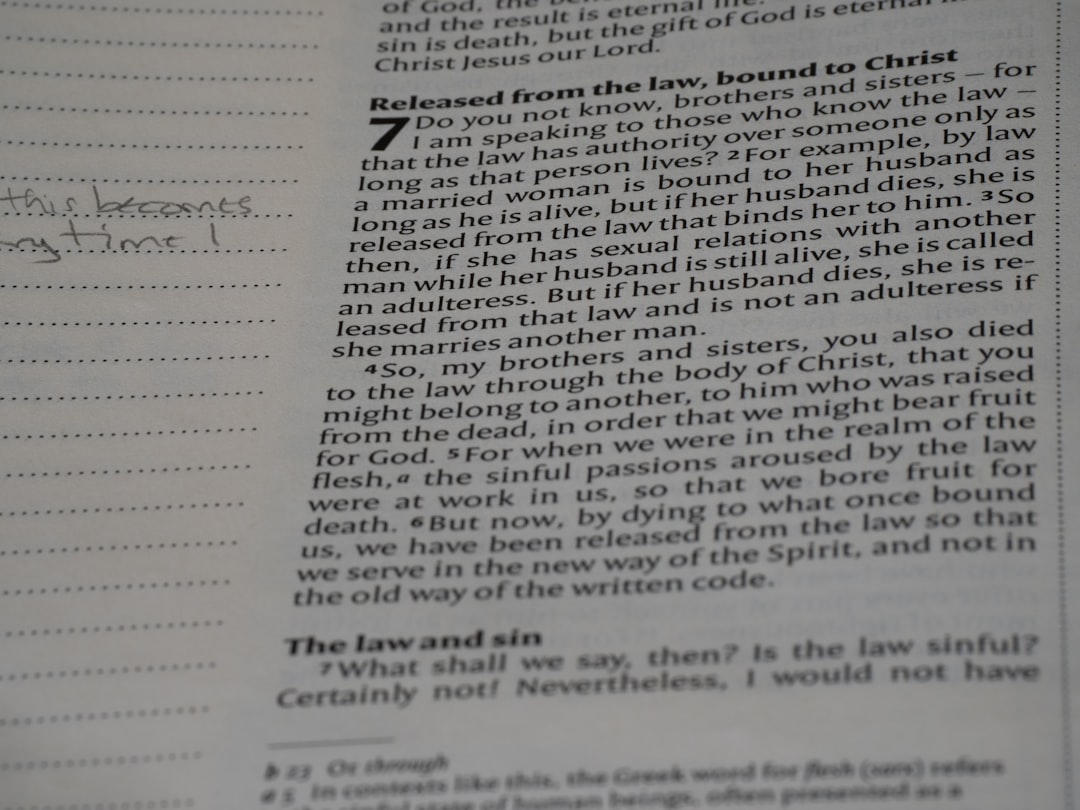 this becomes
time!
of God, the
and the result is eternal life.
sin is death, but the gift of God is eternal
Christ Jesus our Lord.
Released from the law, bound to Christ
7 Do you not know, brothers and sisters – for
I am speaking to those who know the law –
that the law has authority over someone only as
long as that person lives? 2 For example, by law
a married woman is bound to her husband as
long as he is alive, but if her husband dies, she is
released from the law that binds her to him. 3 So
then, if she has sexual relations with another
man while her husband is still alive, she is called
an adulteress. But if her husband dies, she is re-
leased from that law and is not an adulteress if
she marries another man.
4 So, my brothers and sisters, you also died
to the law through the body of Christ, that you
might belong to another, to him who was raised
from the dead, in order that we might bear fruit
for God. 5 For when we were in the realm of the
flesh,a the sinful passions aroused by the law
were at work in us, so that we bore fruit for
death. 6 But now, by dying to what once bound
us, we have been released from the law so that
we serve in the new way of the Spirit, and not in
the old way of the written code.
The law and sin
7 What shall we say, then? Is the law sinful?
Certainly not! Nevertheless, I would not have
b 23 Or through
a 5 In contexts like this, the Greek word for flesh (sarx) refers
the sinful state of human beings, often presented as a